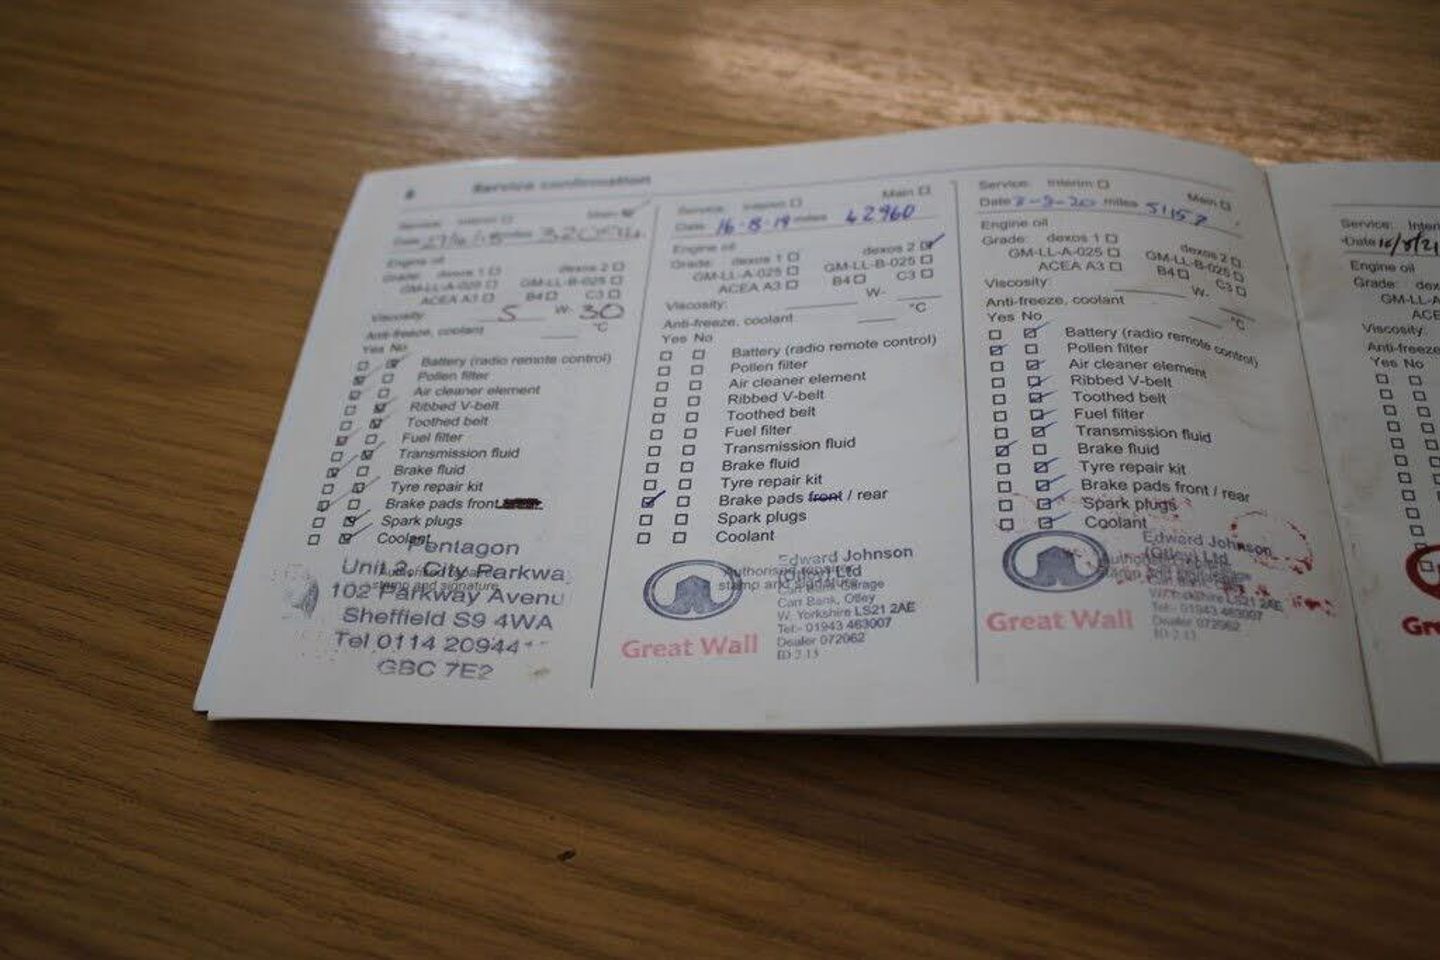 Service confirmation
Service: Interim Main
Date miles
Engine oil
Grade: dexos 1 dexos 2
GM-LL-A-025 GM-LL-B-025
ACEA A3 B4 C3
Viscosity: 5 W- 30
Anti-freeze, coolant °C
Yes No
Battery (radio remote control)
Pollen filter
Air cleaner element
Ribbed V-belt
Toothed belt
Fuel filter
Transmission fluid
Brake fluid
Tyre repair kit
Brake pads front
Spark plugs
Coolant
Pentagon
Unit 2, City Parkwa
102 Parkway Avenu
Sheffield S9 4WA
Tel 0114 20944
GBC 7E2
Service: Interim Main
Date 16-8-19 miles 42960
Engine oil
Grade: dexos 1 dexos 2
GM-LL-A-025 GM-LL-B-025
ACEA A3 B4 C3
Viscosity: W-
Anti-freeze, coolant °C
Yes No
Battery (radio remote control)
Pollen filter
Air cleaner element
Ribbed V-belt
Toothed belt
Fuel filter
Transmission fluid
Brake fluid
Tyre repair kit
Brake pads front / rear
Spark plugs
Coolant
Authorised
stamp and signature
Edward Johnson
(Otley) Ltd
Garage
Carr Bank, Otley
W. Yorkshire LS21 2AE
Tel:- 01943 463007
Dealer 072062
Great Wall
Service: Interim Main
Date -9-20 miles 51157
Engine oil
Grade: dexos 1 dexos 2
GM-LL-A-025 GM-LL-B-025
ACEA A3 B4 C3
Viscosity: W-
Anti-freeze, coolant °C
Yes No
Battery (radio remote control)
Pollen filter
Air cleaner element
Ribbed V-belt
Toothed belt
Fuel filter
Transmission fluid
Brake fluid
Tyre repair kit
Brake pads front / rear
Spark plugs
Coolant
Edward Johnson
(Otley) Ltd
W. Yorkshire LS21 2AE
Tel:- 01943 463007
Dealer 072062
Great Wall
Service: Inter
Date 16/8/21
Engine oil
Grade: dex
GM-LL-A
ACE
Viscosity:
Anti-freeze
Yes No
Gre